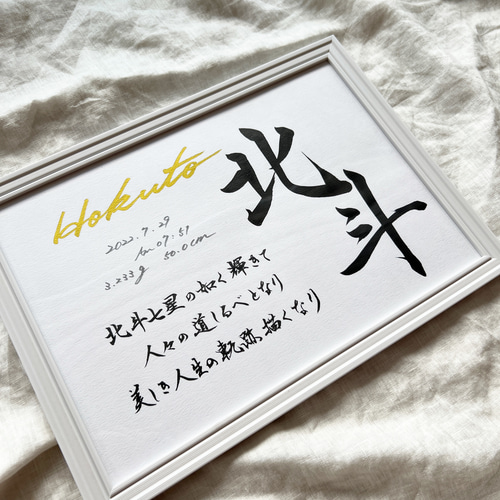 北斗
Hokuto
2022.7.29
am 07:51
3.233g 50.0cm
北斗七星の如く輝きて
人々の道しるべとなり
美しき人生の軌跡描くなり